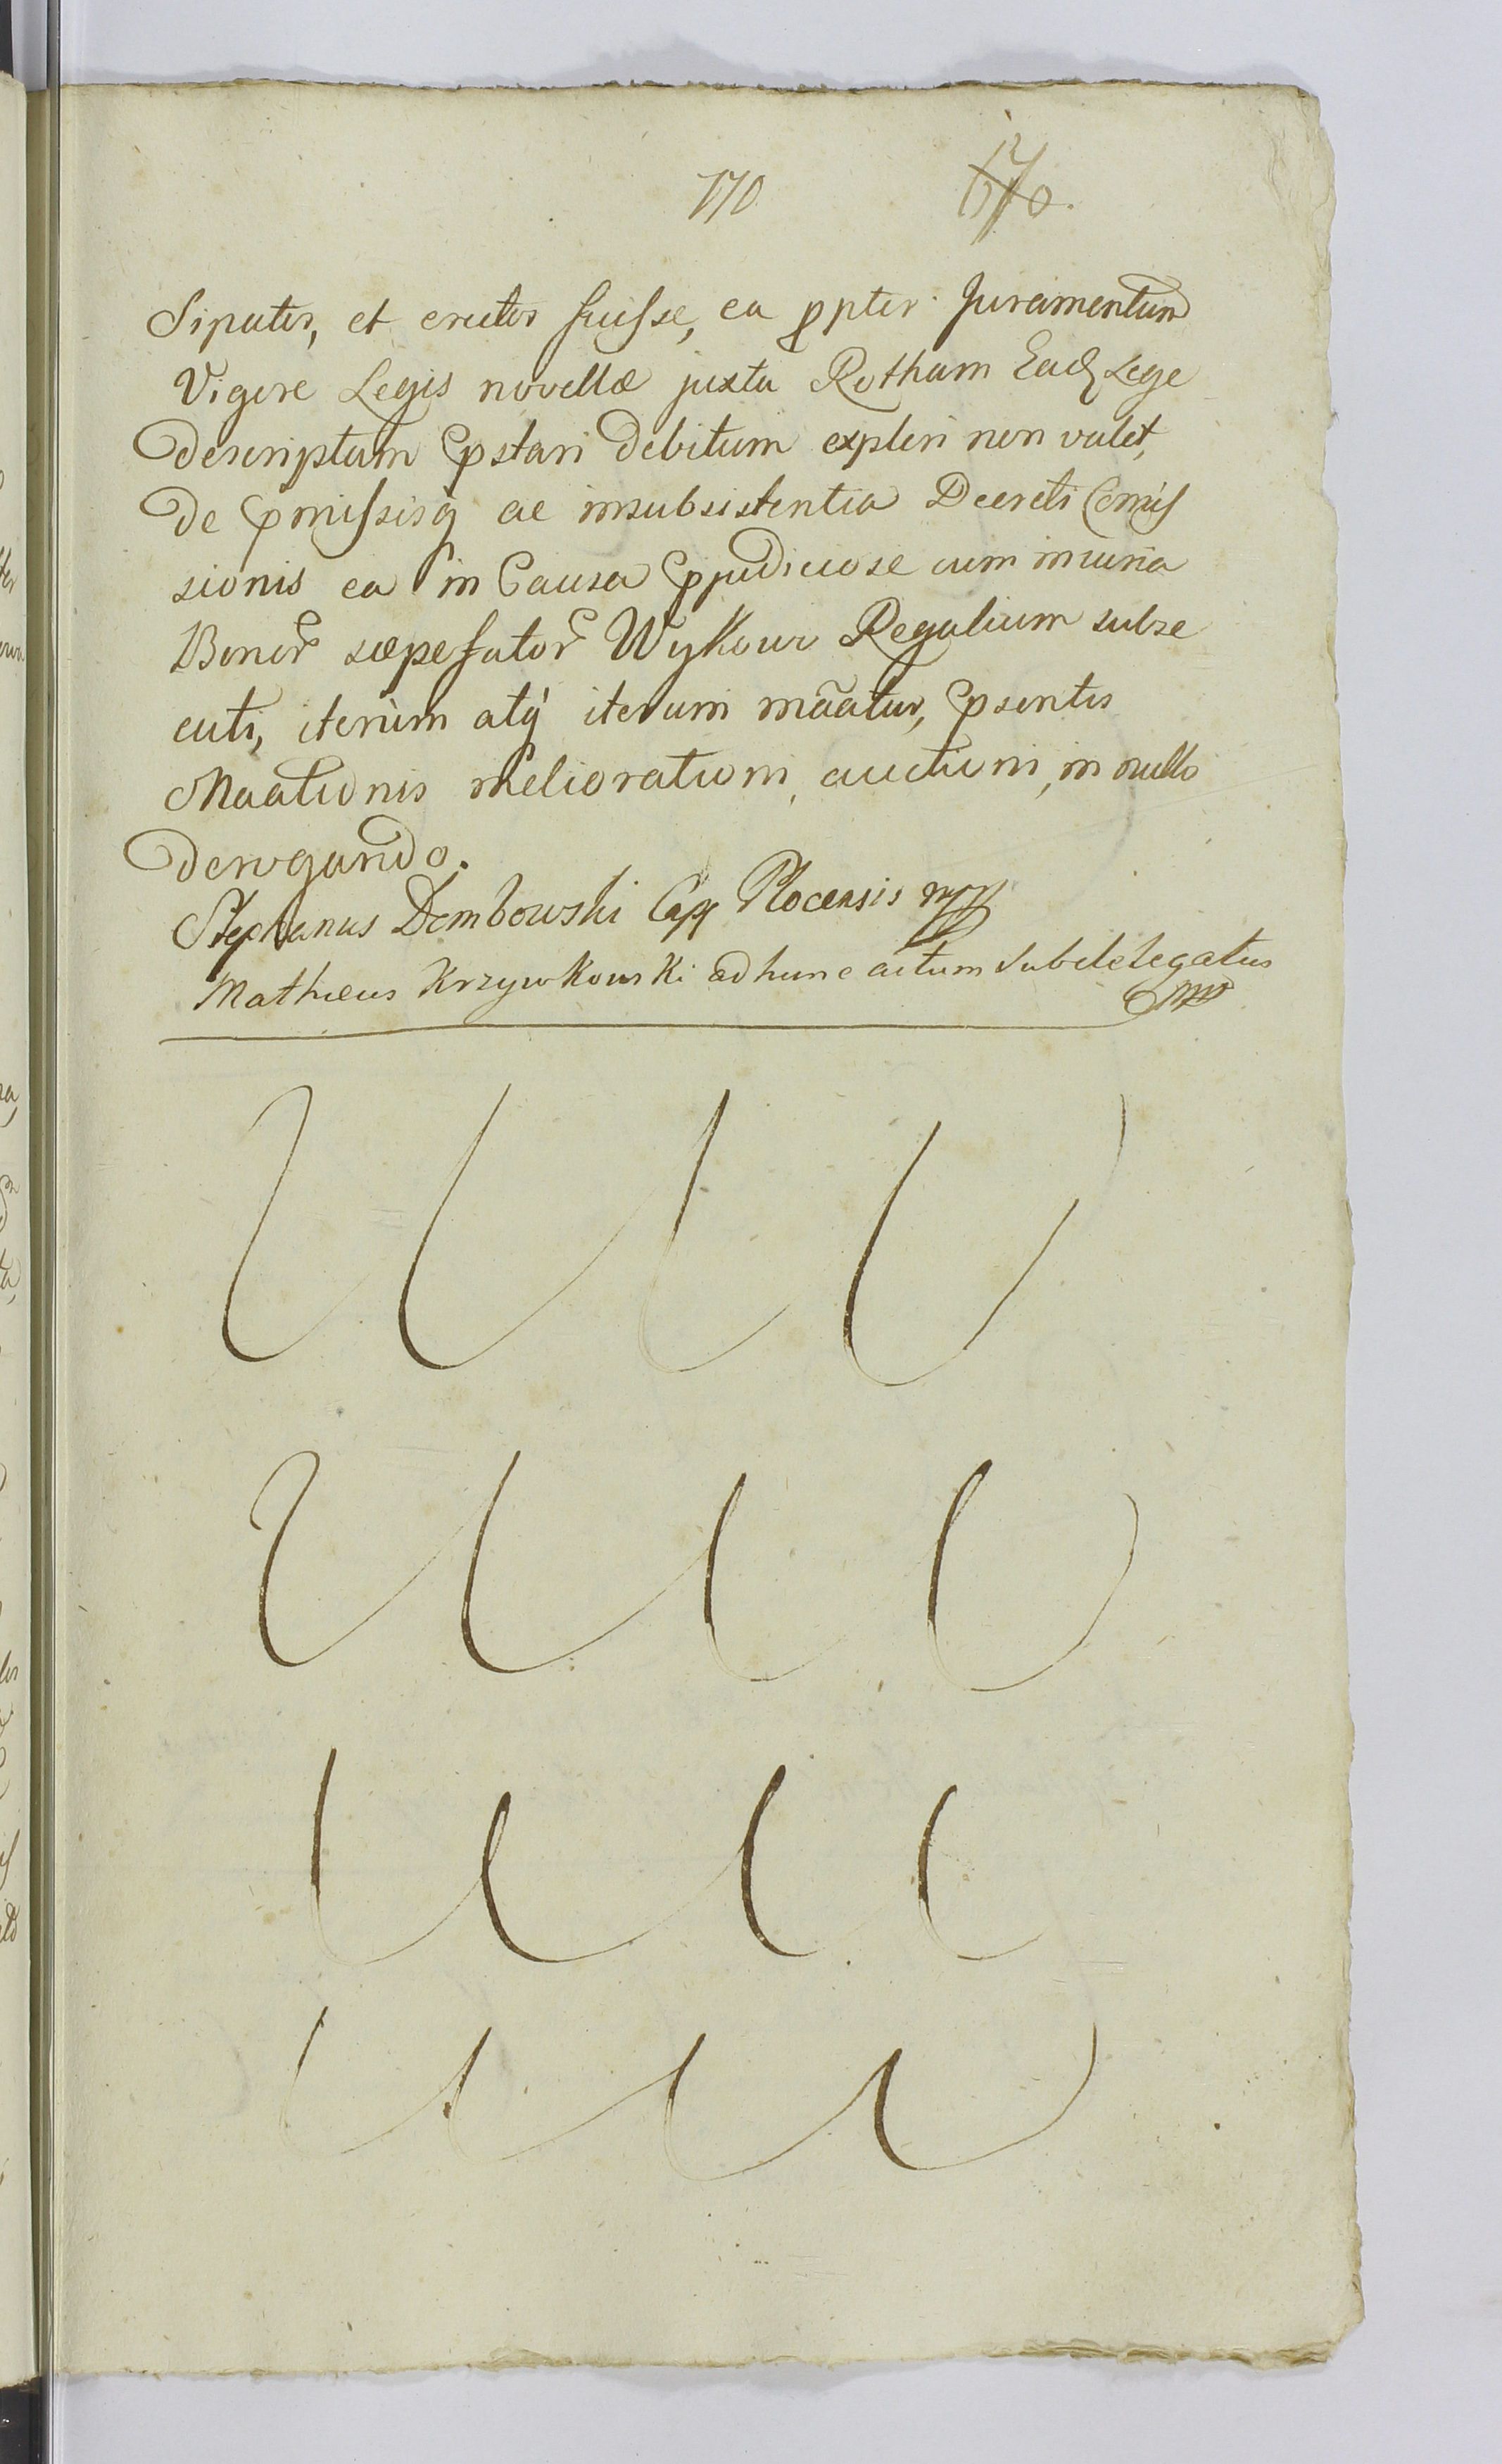 170 170.
Sipatos, et erutos fuisse, ea ppter Juramentum
Vigore Legis novellæ juxta Rotham Eadq Lege
Descriptum pstari Debitum expleri non valet,
De pmissisq ac insubsistentia Decreti Comis
sionis ea in Causa pjudiciose cum iniuria
Bonor sæpefator Wykowo Regalium subse
cuti, iterum atq iterum mãatur, psentis
Maãtionis meliorationi, auctioni, in nullo
Derogando.
Stephanus Dembowski Cap Plocensis mpp
Matheus Krzywkowski ad hunc actum Subdelegatus
mpp